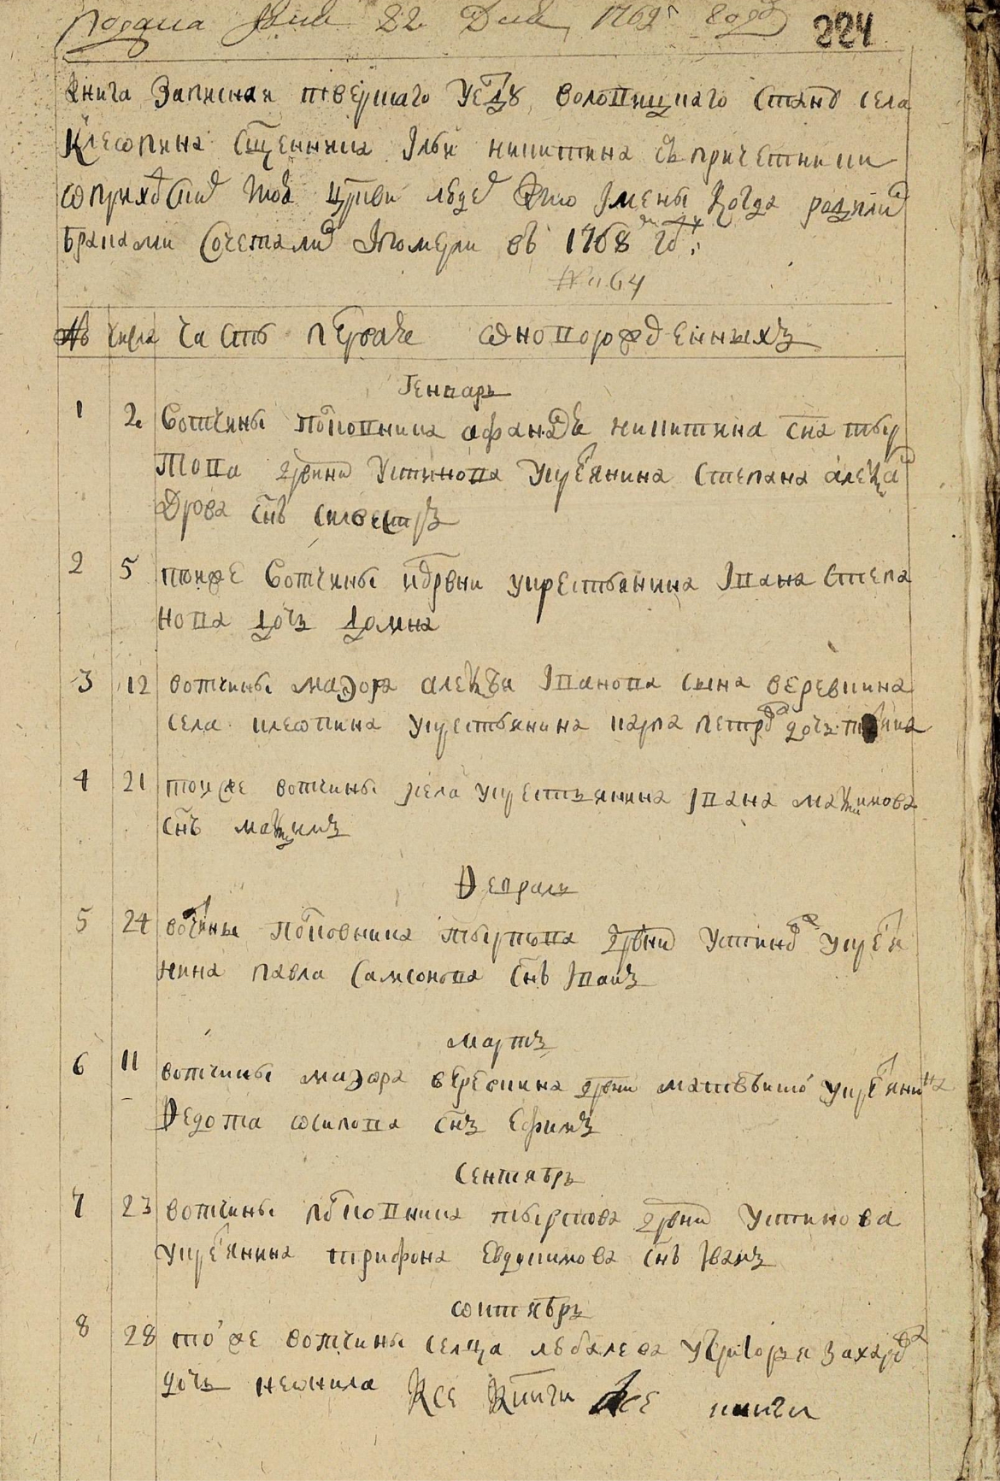 подана дня 22 дня 1769 году 224
Книга Записная тверскаго уезду волопицкаго стану села
Клеопина священника Ильи никитина съ причетники
о приходскихъ той церкви людехъ кто имены когда родились
браками сочетались и померли въ 1768 году:
№ 64
№ числа часть первая о новорожденныхъ
Генварь
1 2 вотчины полковника афанасья никитина сна твер
това дрвни Устинова у крестьянина степана алекса
дрова снъ силвестръ
2 5 тоиже вотчины и дрвни у крестьянина Ивана степа
нова дочь домна
3 12 вотчины маэора алексея Иванова сына веревкина
села клеопина у крестьянина карпа петрова дочь
4 21 тоиже вотчины села у крестьянина Ивана максимова
снъ максимъ
Февраля
5 24 вотчины полковника тверитова дрвни Устинова у кресья
нина павла самсонова снъ Иванъ
мартъ
6 11 вотчины маэора веревкина дрвни у кресьянина
Федота осипова снъ ефимъ
Сентябрь
7 23 вотчины полковника дрвни Устинова
у кресьянина трифона евдокимова снъ Иванъ
октябрь
8 28 тоже вотчины селца григорья захарова
дочь неонила